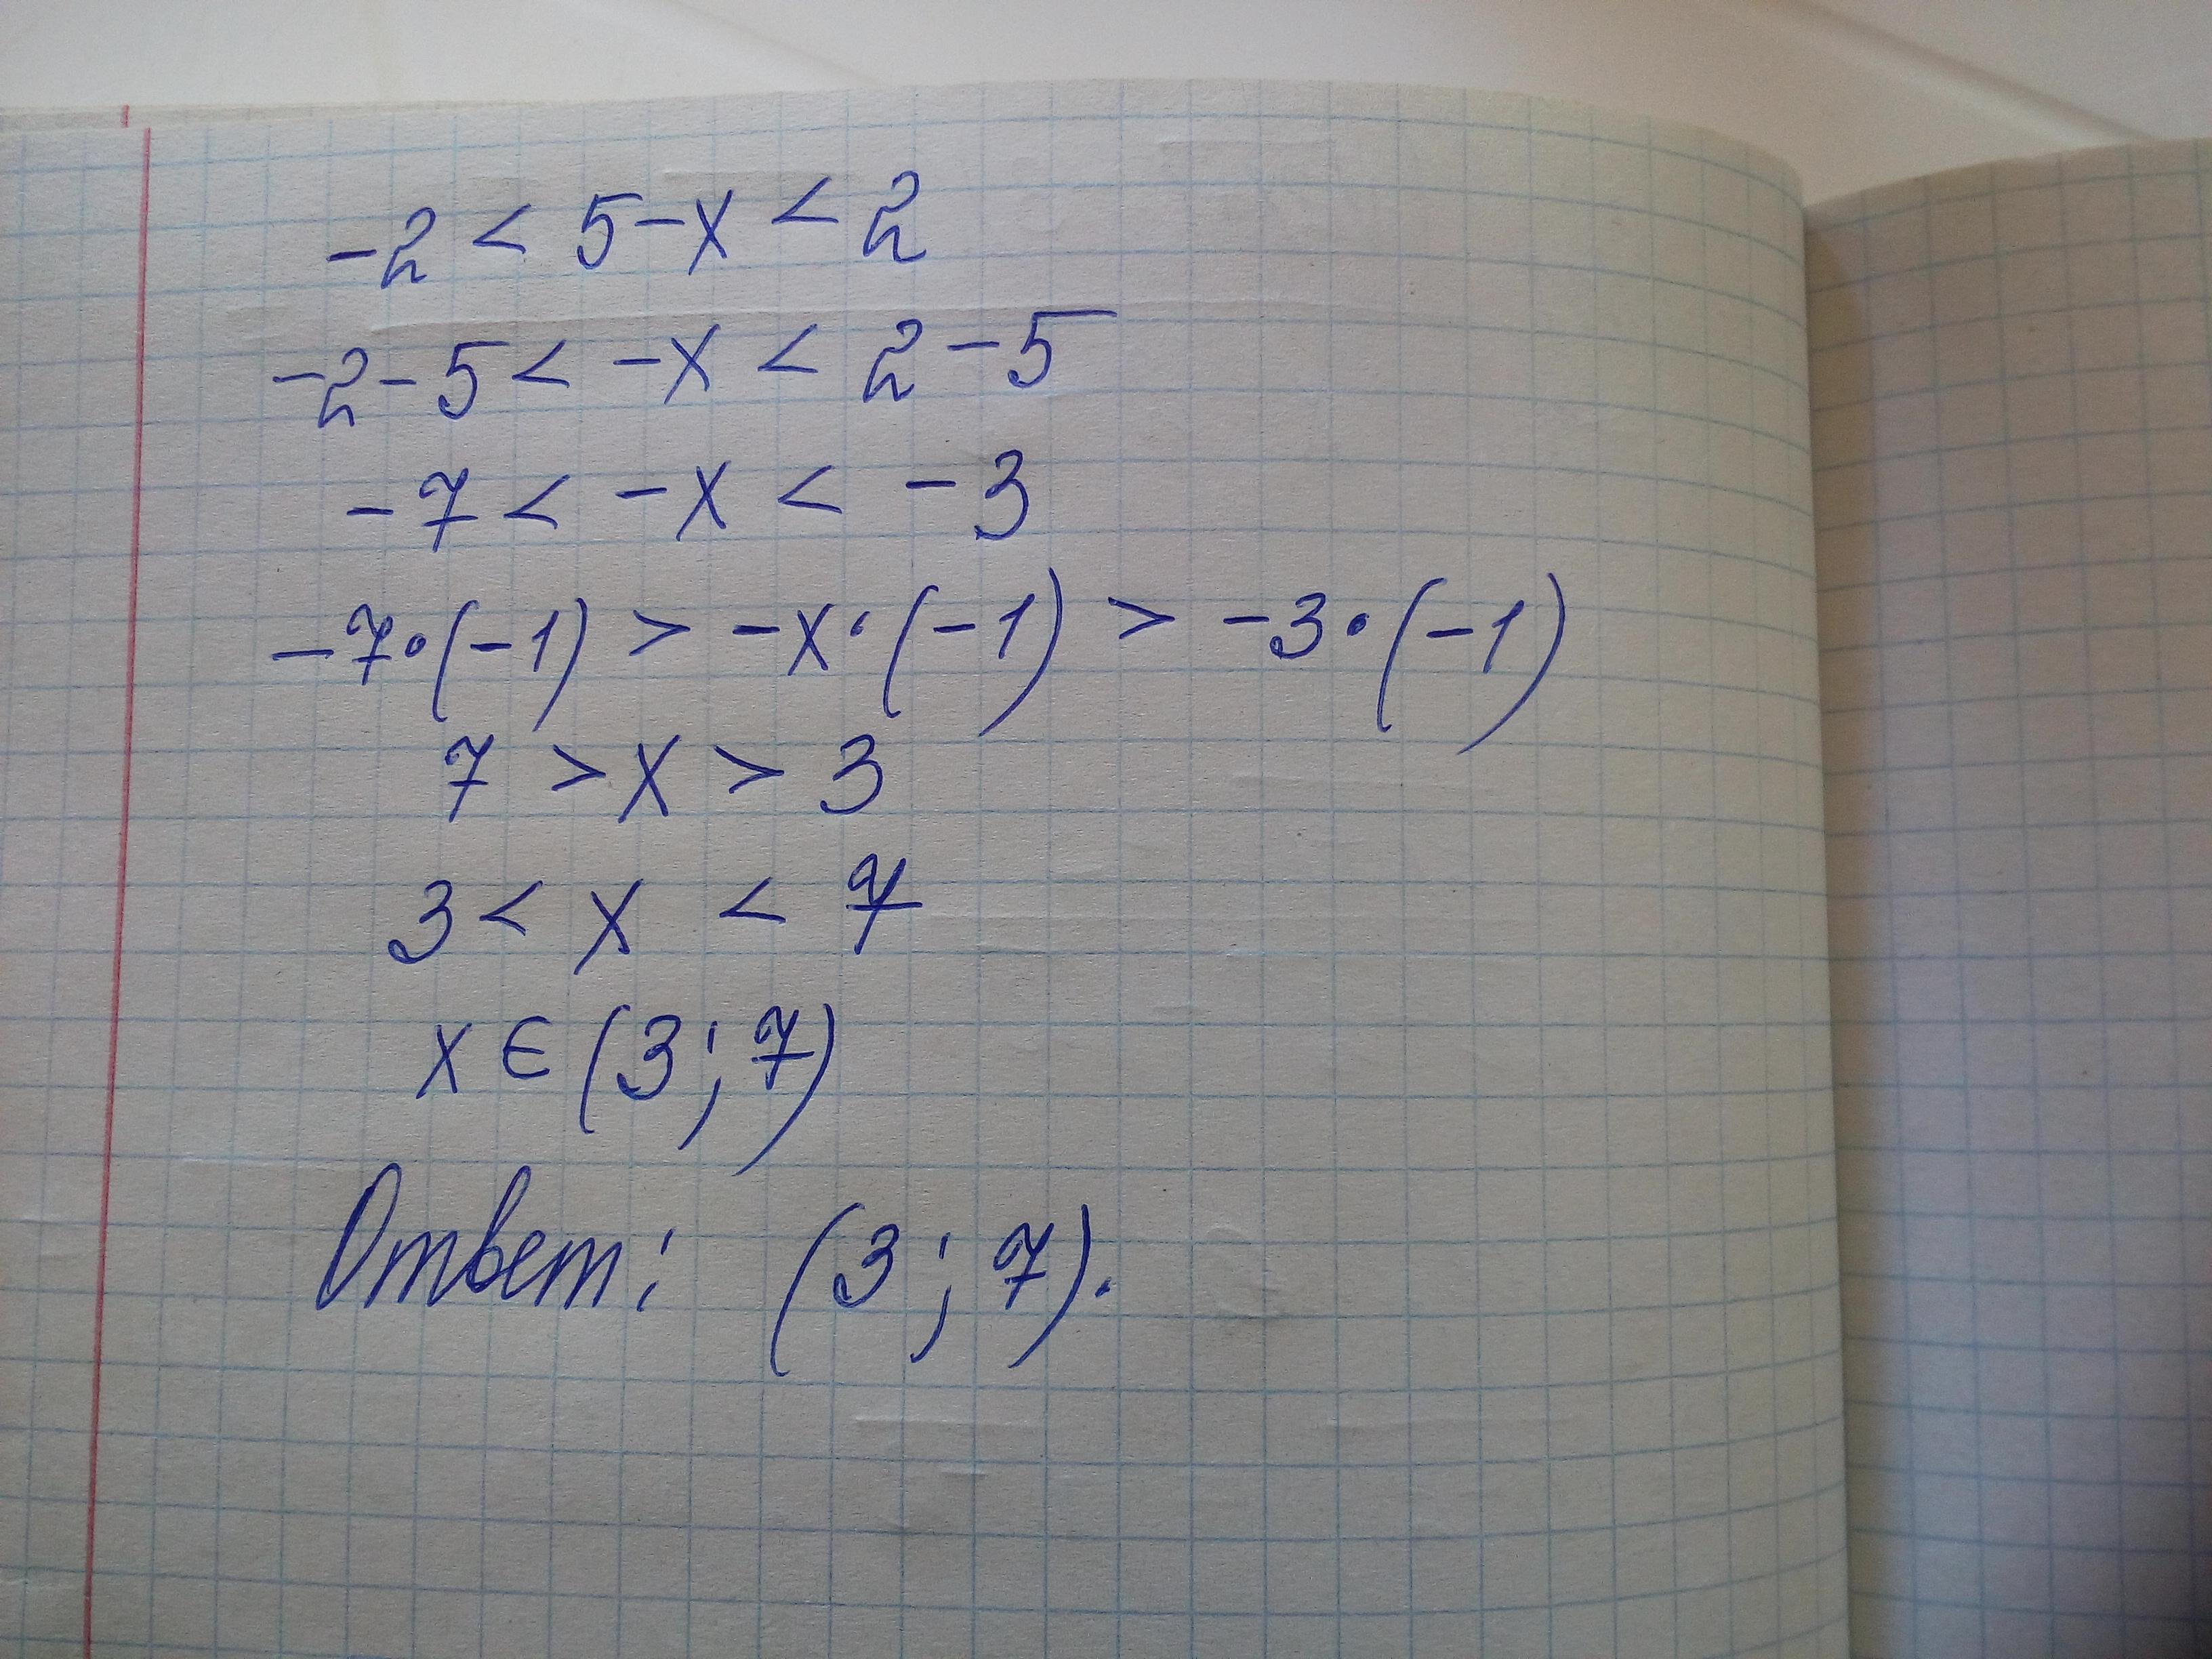 -2 < 5-x < 2
-2-5 < -x < 2-5
-7 < -x < -3
-7·(-1) > -x·(-1) > -3·(-1)
7 > x > 3
3 < x < 7
x ∈ (3; 7)
Ответ: (3; 7).